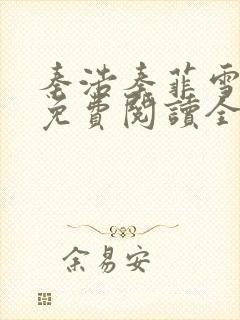 秦浩秦菲雪
免費閱讀全
余易安